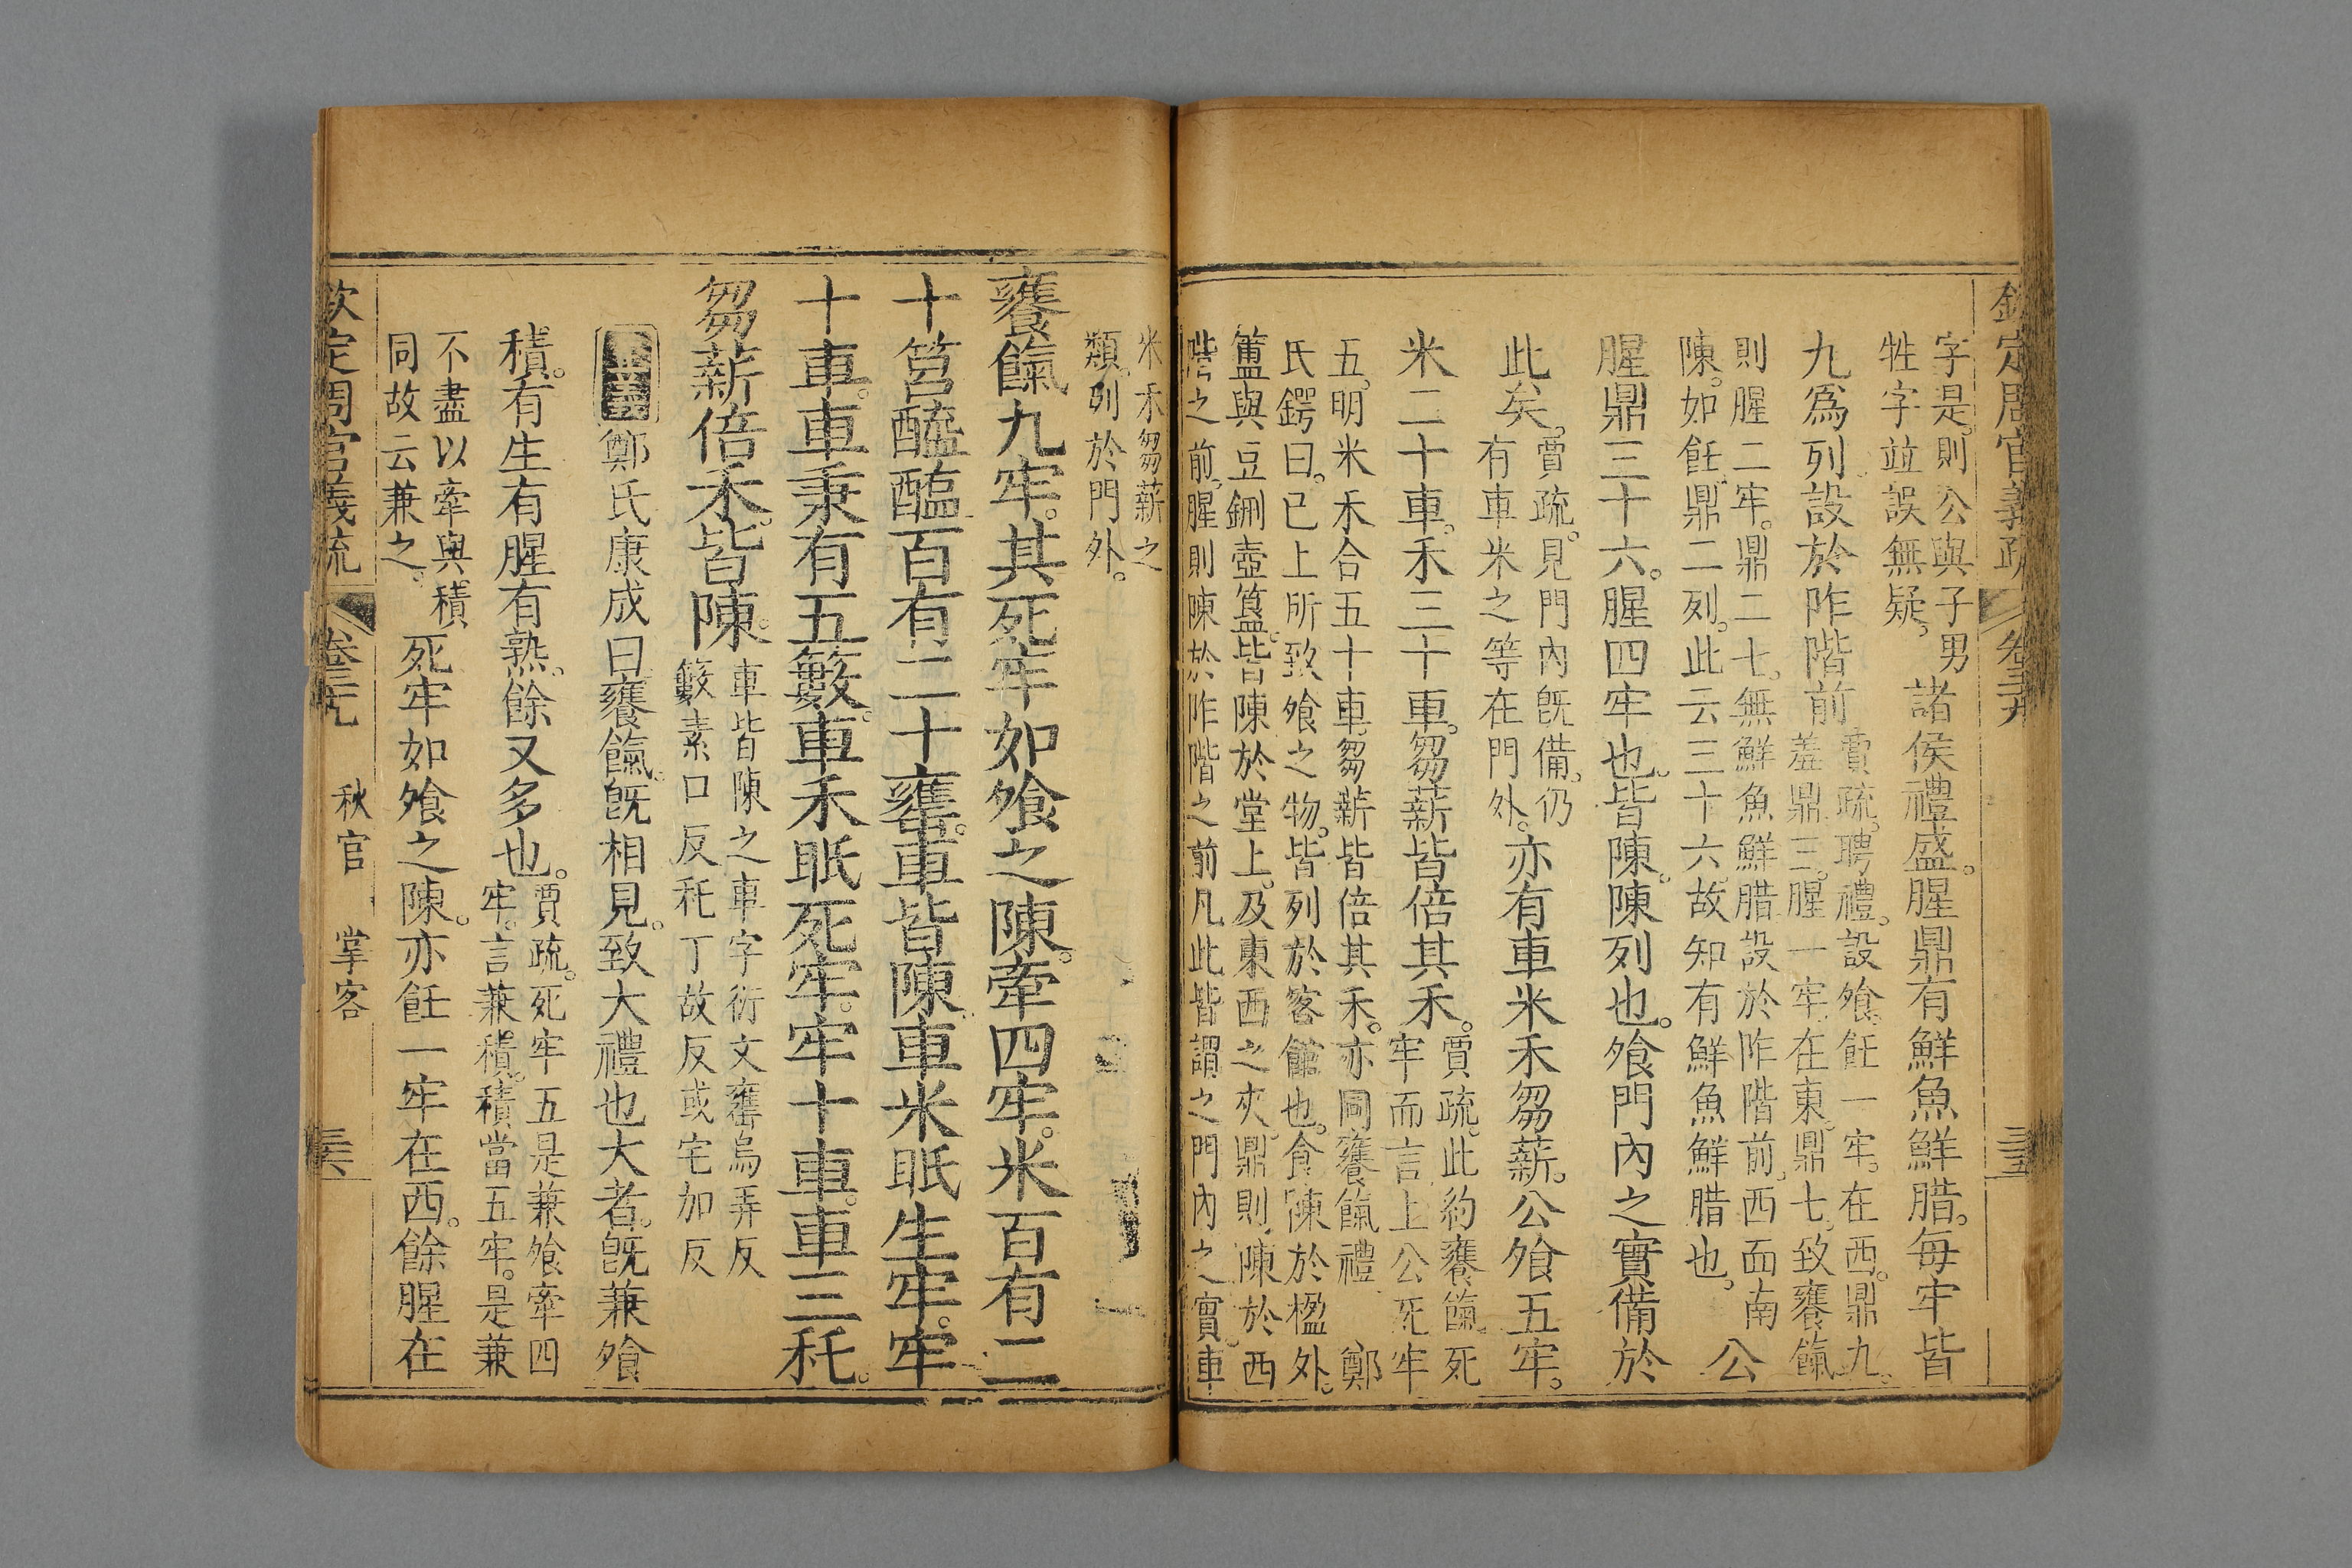 欽定周官義疏 卷三十九 三五
字是則公與子男
牲字並誤無疑諸侯禮盛。腥鼎有鮮魚鮮腊。每牢皆
九爲列設於阼階前賈疏。聘禮。設飧。飪一牢。在西。鼎九。
羞鼎三。腥一牢。在東。鼎七。致饔餼
則腥二牢。鼎二七。無鮮魚鮮腊設於阼階前。西面南
陳。如飪鼎二列。此云三十六。故知有鮮魚鮮腊也。公
腥鼎三十六。腥四牢也。皆陳。陳列也。飧門內之實備於
此矣。賈疏。見門內既備。仍
有車米之等在門外。亦有車米禾芻薪。公飧五牢。
米二十車。禾三十車。芻薪皆倍其禾。賈疏。此約饔餼。死
牢而言上公死牢
五。明米禾合五十車。芻薪皆倍其禾。亦同饔餼禮 鄭
氏鍔曰。已上所致飧之物。皆列於客館也。食陳於楹外。
簠與豆鉶壺簋。皆陳於堂上。及東西之夾。鼎則陳於西
階之前。腥則陳於阼階之前凡此皆謂之門內之實。車
米禾芻薪之
類。列於門外。
饔餼九牢。其死牢如飧之陳。牽四牢。米百有二
十筥醯醢百有二十罋。車皆陳。車米眡生牢。牢
十車。車秉有五籔。車禾眡死牢。牢十車。車三秅。
芻薪倍禾。皆陳。車皆陳之車字衍文罋烏弄反
籔素口反秅丁故反或宅加反
鄭氏康成曰饔餼。既相見。致大禮也大者。既兼飧
積。有生有腥有熟。餘又多也。賈疏。死牢五是兼飧牽四
牢。言兼積。積當五牢。是兼
不盡以牽與積
同故云兼之。死牢如飧之陳。亦飪一牢在西。餘腥在
欽定周官義疏 卷三十九 秋官 掌客 三六